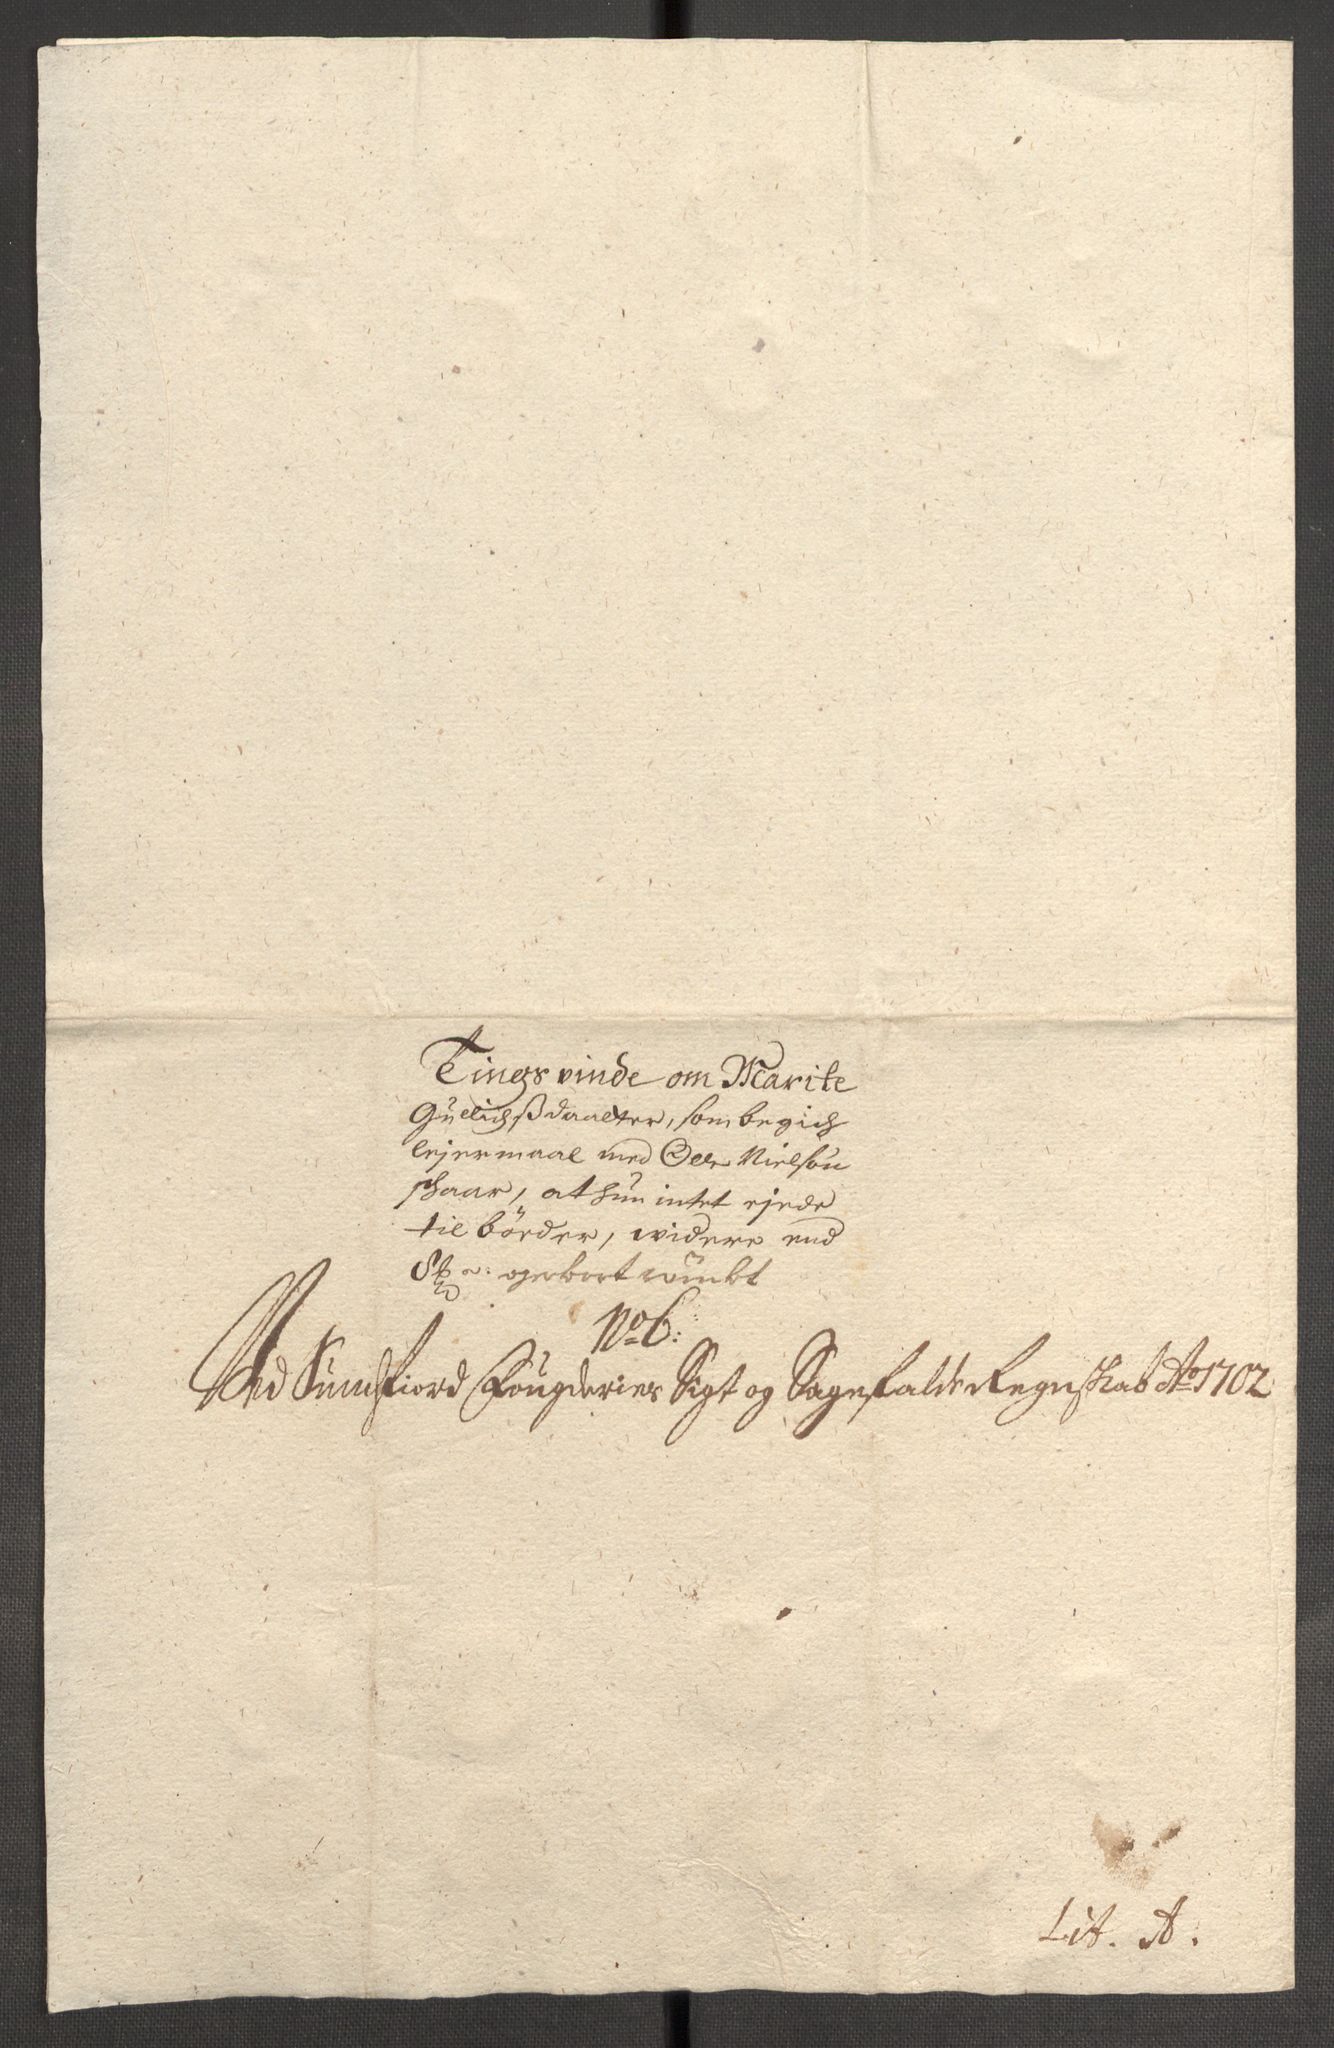 Tingsvinde om Marite
Gullichsdaatter, som begich
lejermaal med Olle Nielsøn
at hun intet ejede
til bøeder, widere end
No 6:
Ved Sundfiord Fougderies Sigt og Sagefalds Regnskab Ao 1702
Lit. A.